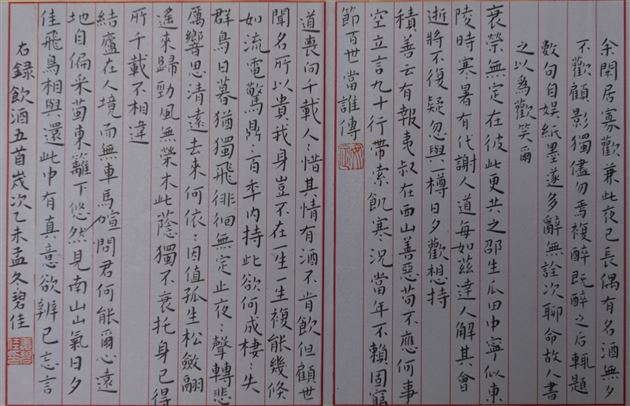 余閑居寡歡兼此夜已長偶有名酒無夕
不歡顧影獨儘勿焉複醉既醉之后輒題
數句自娱紙墨遂多辭無詮次聊命故人書
之以為歡笑爾
衰榮無定在彼此更共之邵生瓜田中寧似東
陵時寒暑有代謝人道每如茲達人解其會
逝將不復疑忽與一樽日夕歡想持
積善云有報夷叔在西山善惡苟不應何事
空立言九十行帶索飢寒況當年不賴固窮
節百世當誰傳
道喪向千載人〻惜其情有酒不肯飲但顧世
聞名所以貴我身豈不在一生一生複能幾倏
如流電驚鼎〻百年內持此欲何成棲〻失
群鳥日暮猶獨飛徘徊無定止夜〻聲轉悲
厲響思清遠去來何依〻因值孤生松斂翮
遙來歸勁風無榮木此蔭獨不衰托身已得
所千載不相違
結廬在人境而無車馬喧問君何能爾心遠
地自偏采菊東籬下悠然見南山山氣日夕
佳飛鳥相與還此中有真意欲辨已忘言
右錄飲酒五首歲次乙未孟冬碧佳